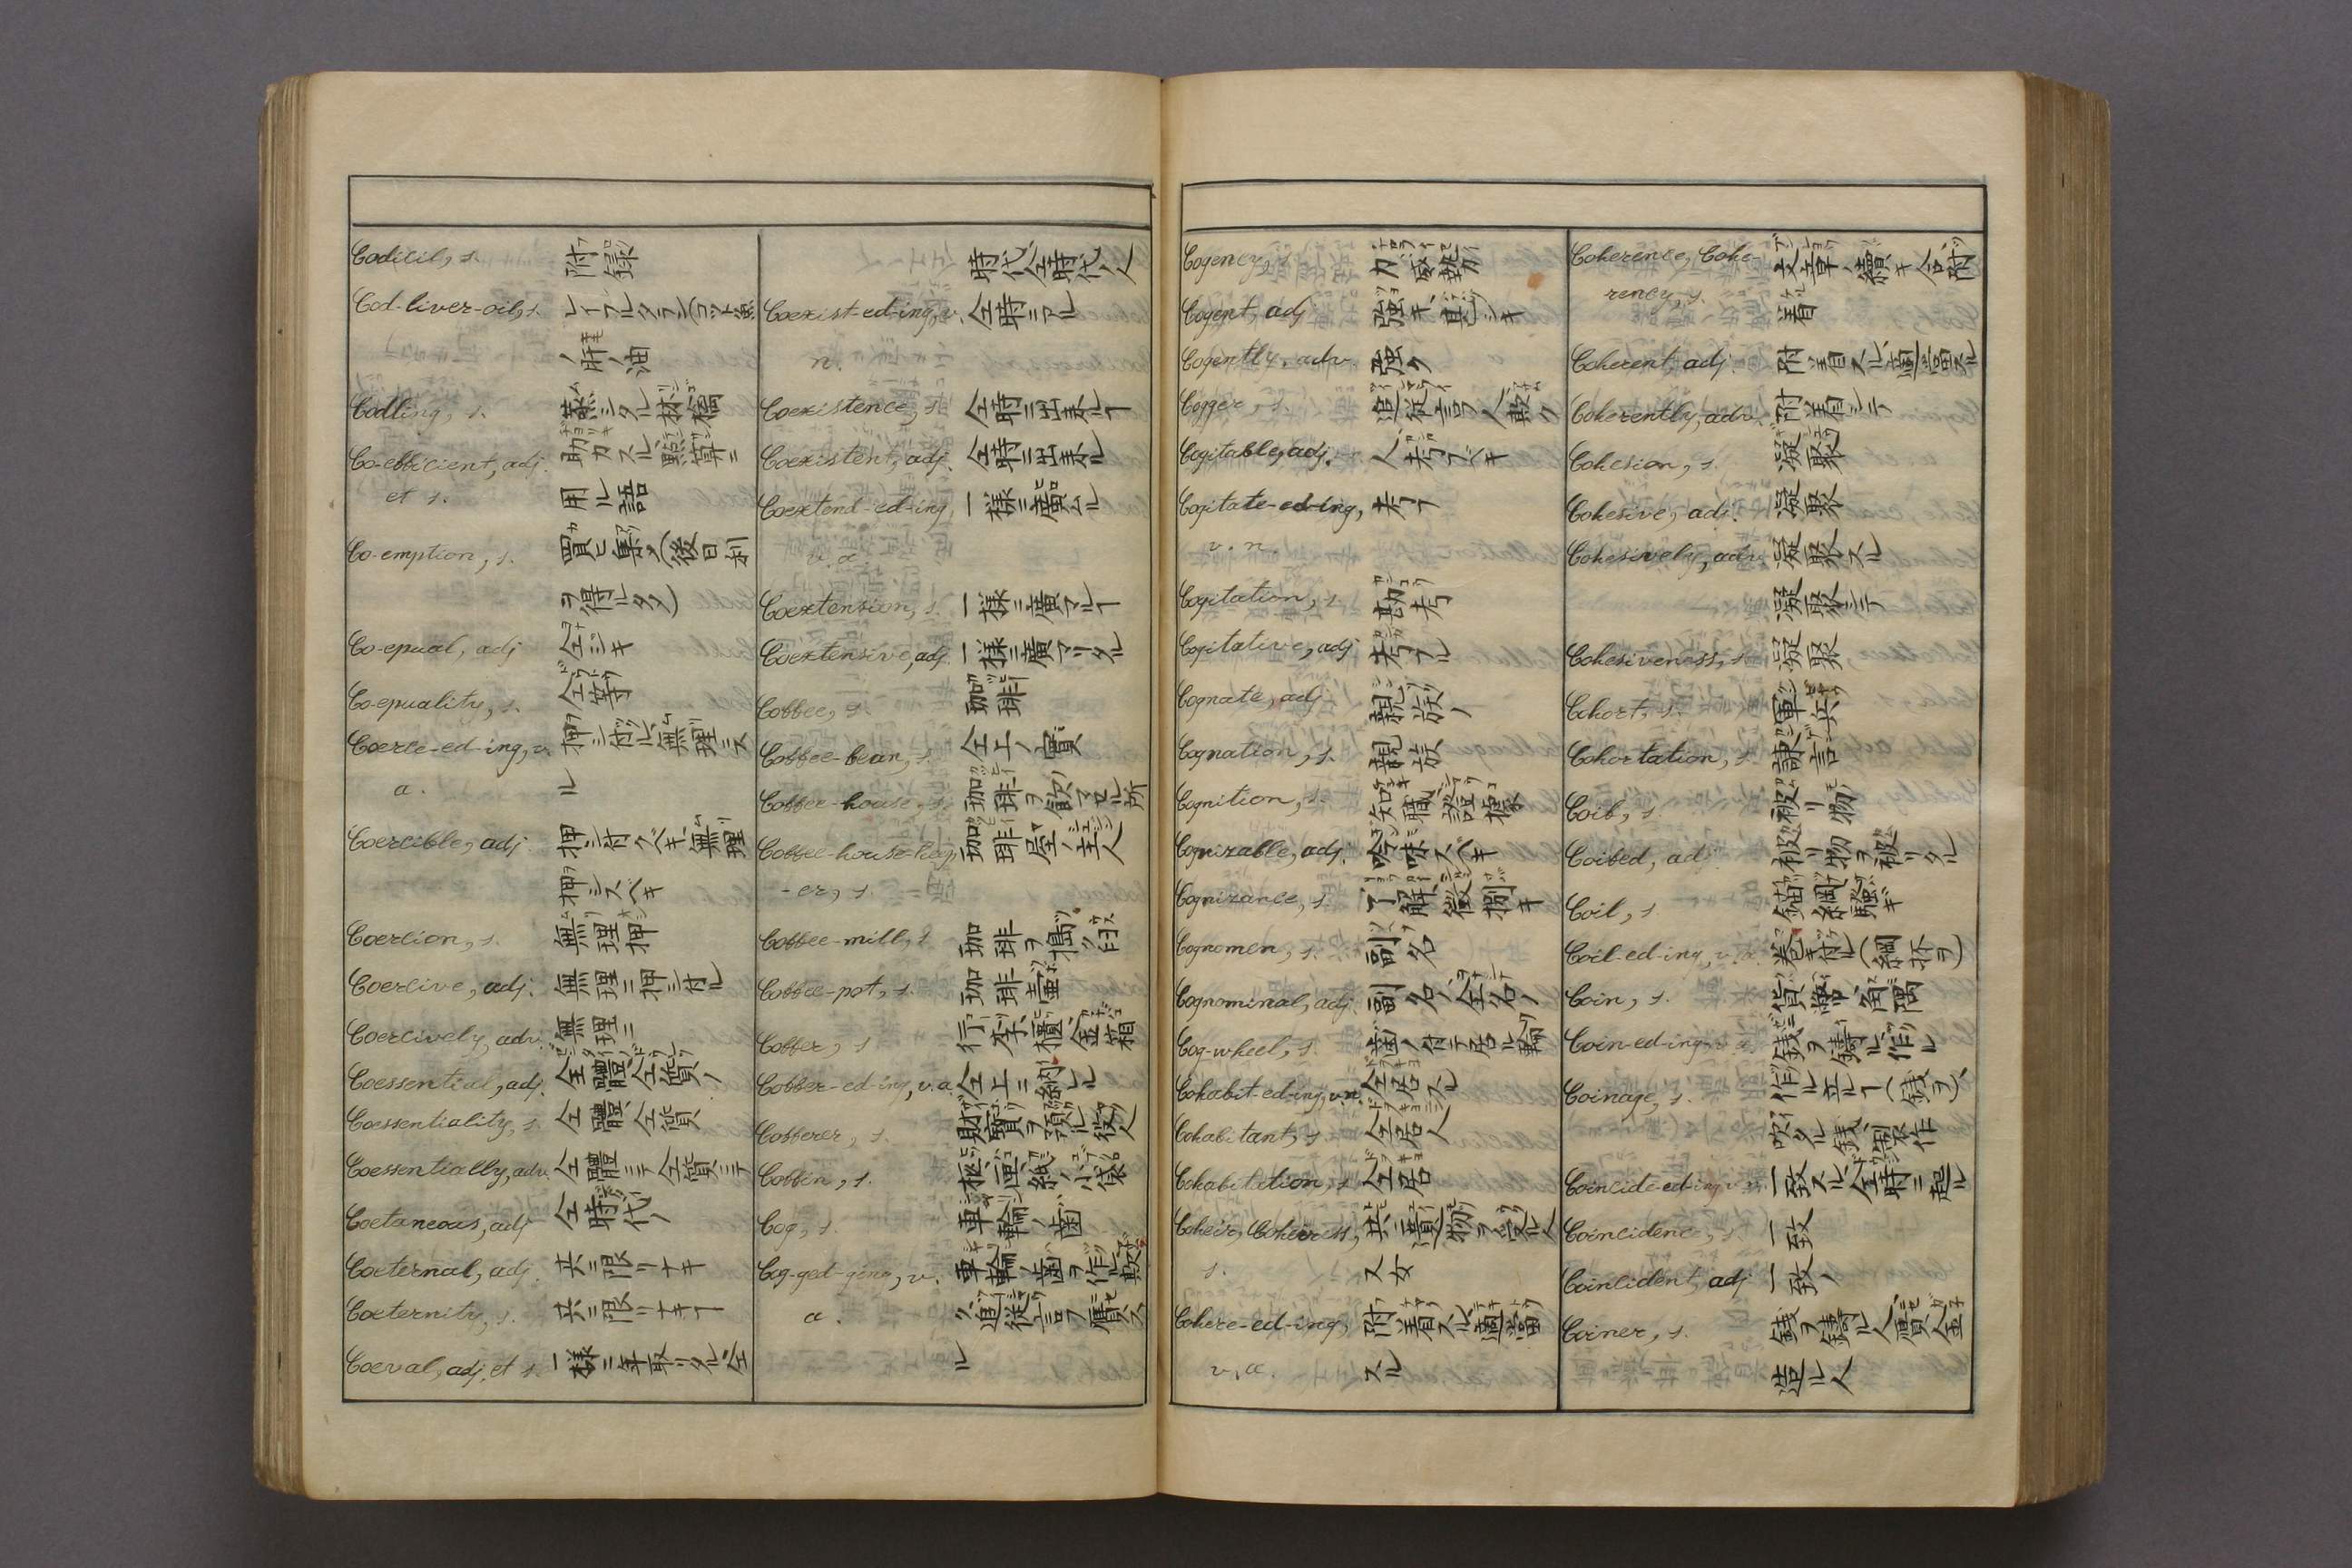 Codicil, s. 附録
Cod-liver-oil, s. レーフルタラン(コット魚
ノ肝ノ油
Codling, s. 蒸シタル林檎
Co-efficient, adj. 助力スル、點算ニ
et s. 用ル語
Co-emption, s. 買ヒ集メ(後日利
ヲ得ルタメ)
Co-equal, adj 仝ジキ
Co-equality, s. 仝等
Coerce-ed-ing, v. 押シ付ル、無理ニス
a. ル
Coercible, adj. 押シ付クベキ、無理
押シスベキ
Coercion, s. 無理押
Coercive, adj. 無理ニ押シ付ル
Coercively, adv. 無理ニ
Coessential, adj. 仝體仝質ノ
Coessentiality, s. 仝體、仝質
Coessentially, adv. 仝體ニテ、仝質ニテ
Coetaneous, adj 仝時代ノ
Coeternal, adj. 共ニ限リナキ
Coeternity, s. 共ニ限リナキヿ
Coeval, adj. et s. 一様ニ年取リタル、仝
時代、仝時代ノ人
Coexist-ed-ing, v. 仝時ニアル
n.
Coexistence, s. 仝時ニ出来ルヿ
Coexistent, adj. 仝時ニ出来ル
Coextend-ed-ing, 一様ニ廣ムル
v. a.
Coextension, s. 一様ニ廣マルヿ
Coextensive, adj. 一様ニ廣マリタル
Coffee, s. 珈琲
Coffee-bean, s. 仝上ノ實
Coffee-house, s. 珈琲ヲ飲マセル所
Coffee-house-keep 珈琲屋ノ主人
-er, s.
Coffee-mill, s. 珈琲ヲ搗ク臼
Coffee-pot, s. 珈琲壷
Coffer, s. 行李、櫃、金箱
Coffer-ed-ing, v.a. 仝上ニ納ムル
Cofferer, s. 財寶ヲ預ル役人
Coffin, s. 柩、凾、紙ノ小袋
Cog, s. 車輪ノ歯
Cog-ged-ging, v. 車輪ノ歯ヲ作ル、欺
a. ク、追従ヲ言フ、贋ス
ル
Cogency, s. 力、威勢
Cogent, adj 強キ、急ガシキ
Cogently, adv. 強ク
Cogger, s. 追従ヲ言フ人、欺ク
人
Cogitable, adj. 考フベキ
Cogitate-ed-ing, 考フ
v. n.
Cogitation, s. 勘考
Cogitative, adj 考フル
Cognate, adj 親族ノ
Cognation, s. 親族
Cognition, s. 知職、證據
Cognizable, adj. 吟味スベキ
Cognizance, s. 了解、
Cognomen, s. 副名
Cognominal, adj. 副名ノ、仝名ノ
Cog-wheel, s. 歯ノ付テ居ル輪
Cohabit-ed-ing, v.n. 仝居スル
Cohabitant, s. 仝居人
Cohabitation, s. 仝居
Coheir, Coheiress, 共ニ遺物ヲ受ル人
s. 又女
Cohere-ed-ing, 附着スル、適當
v. a. スル
Coherence, Cohe- 文章ノ續キ合、附
rency, s. 着
Coherent, adj. 附着スル、適當スル
Coherently, adv. 附着シテ
Cohesion, s. 凝聚
Cohesive, adj. 凝聚
Cohesively, adv. 凝聚スル
凝聚シテ
Cohesiveness, s. 凝聚
Cohort, s. 軍兵
Cohortation, s. 諌言
Coif, s. 被リ物
Coifed, adj 被リ物ヲ被リタル
Coil, s. 錨綱、騒ギ
Coil-ed-ing, v. a. 巻キ付ル(綱抔ヲ)
Coin, s. 貨幣、角隅
Coin-ed-ing, v. a. 銭ヲ鋳ル、作ル
Coinage, s. 作リ立ルヿ(銭ヲ)、
吹タル銭、製作
Coincide-ed-ing, v. n. 一致スル、仝時ニ起ル
Coincidence, s. 一致
Coincident, adj 一致ノ
Coiner, s. 銭ヲ鋳ル人、贋金
造ル人